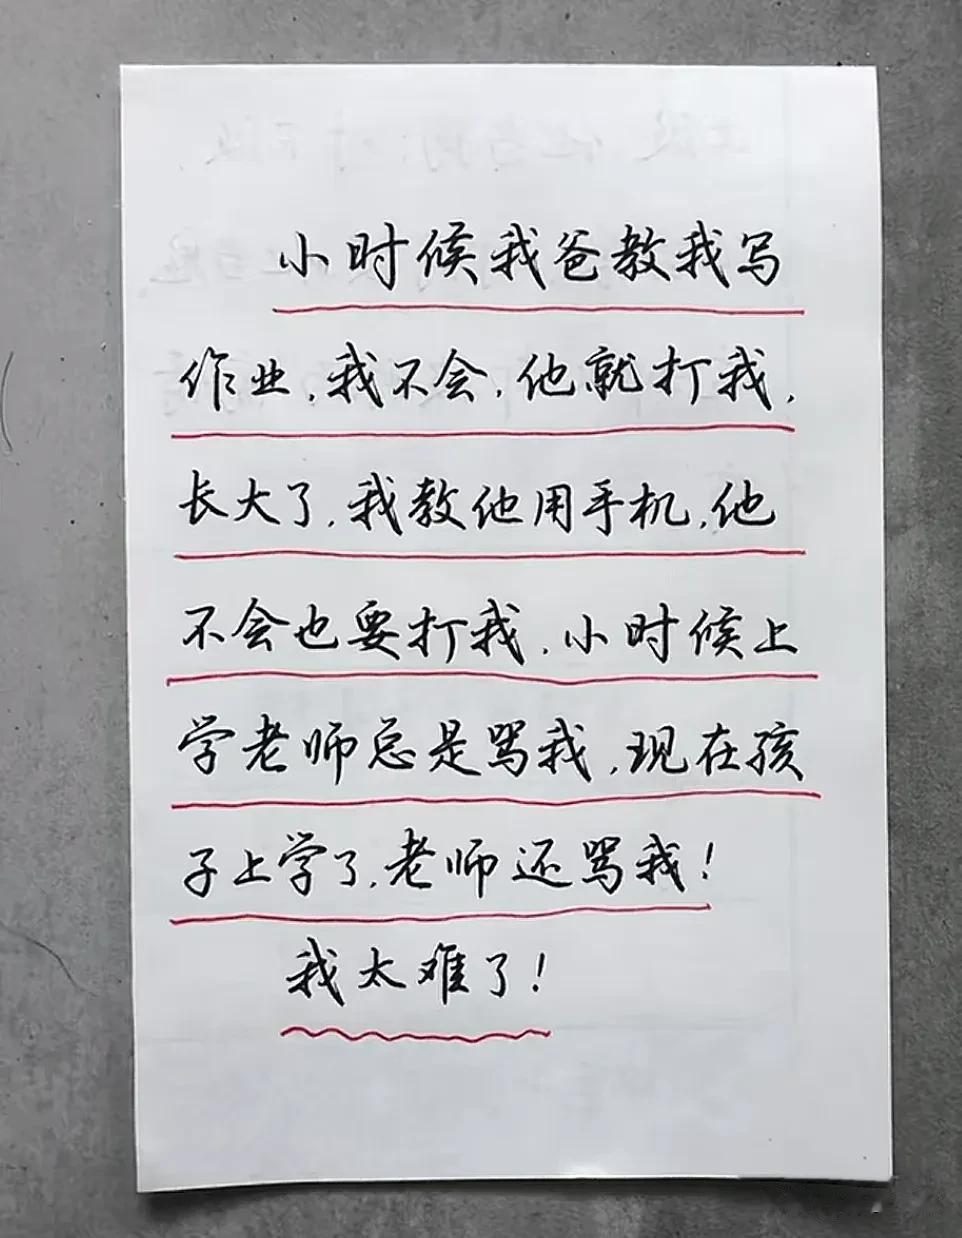 小时候我爸教我写
作业，我不会，他就打我，
长大了，我教他用手机，他
不会也要打我，小时候上
学老师总是骂我，现在孩
子上学了，老师还骂我！
我太难了！